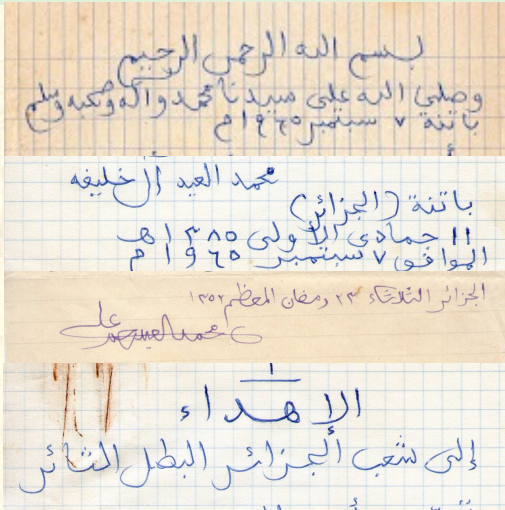 بسم الله الرحمن الرحيم
وصلى الله على سيدنا محمد وآله وصحبه وسلم
باتنة ٧ سبتمبر ١٩٦٥م
محمد العيد آل خليفه
باتنة (الجزائر)
١١ جمادى الأولى ١٣٨٥هـ
الموافق ٧ سبتمبر ١٩٦٥م
الجزائر الثلاثاء ٢٣ رمضان المعظم ١٣٥٢
محمد العيد
الإهداء
إلى شعب الجزائر البطل الثائر